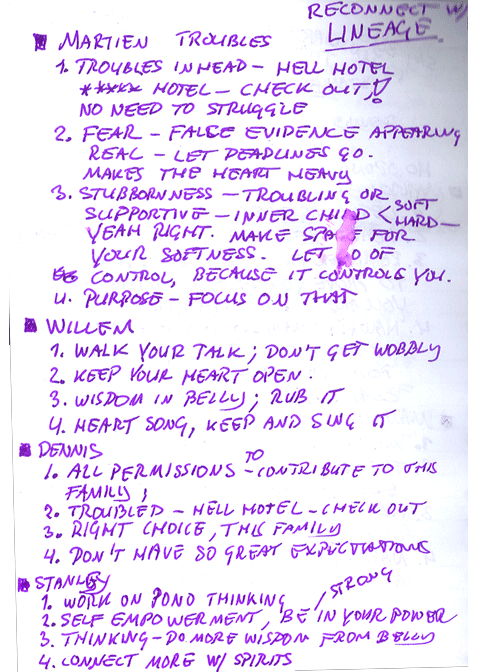 RECONNECT W/
LINEAGE
MARTIEN TROUBLES
1. TROUBLES IN HEAD – HELL HOTEL
***** HOTEL – CHECK OUT!!
NO NEED TO STRUGGLE
2. FEAR – FALSE EVIDENCE APPEARING
REAL – LET DEADLINES GO.
MAKES THE HEART HEAVY
3. STUBBORNNESS – TROUBLING OR
SUPPORTIVE – INNER CHILD < SOFT
HARD –
YEAH RIGHT. MAKE SPACE FOR
YOUR SOFTNESS. LET GO OF
CONTROL, BECAUSE IT CONTROLS YOU.
4. PURPOSE – FOCUS ON THAT
WILLEM
1. WALK YOUR TALK; DON'T GET WOBBLY
2. KEEP YOUR HEART OPEN.
3. WISDOM IN BELLY; RUB IT
4. HEART SONG, KEEP AND SING IT
DENNIS
1. ALL PERMISSIONS – TO CONTRIBUTE TO THIS
FAMILY;
2. TROUBLED – HELL HOTEL – CHECK OUT
3. RIGHT CHOICE, THIS FAMILY
4. DON'T HAVE SO GREAT EXPECTATIONS
STANLEY
1. WORK ON POND THINKING / STRONG
2. SELF EMPOWERMENT, BE IN YOUR POWER
3. THINKING – DO MORE WISDOM FROM BELLY
4. CONNECT MORE W/ SPIRITS